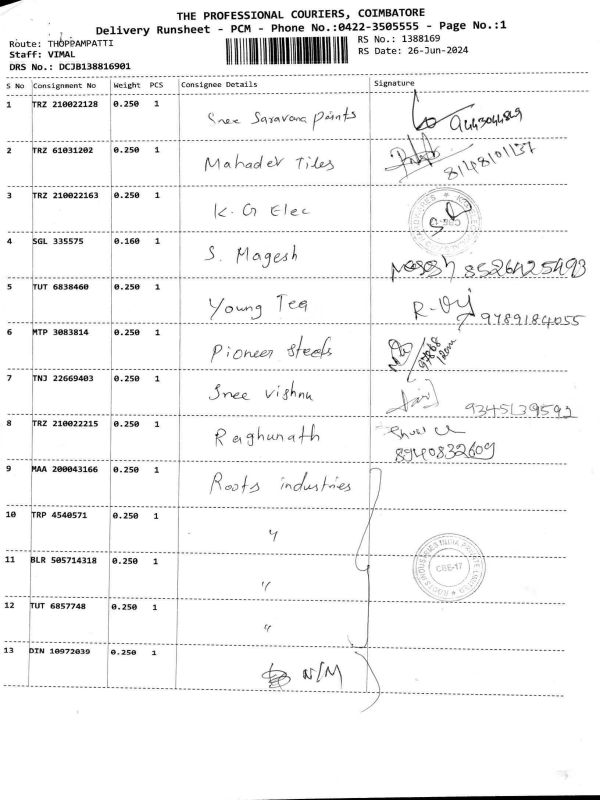 THE PROFESSIONAL COURIERS, COIMBATORE
Delivery Runsheet - PCM - Phone No.:0422-3505555 - Page No.:1
Route: THOPPAMPATTI RS No.: 1388169
Staff: VIMAL RS Date: 26-Jun-2024
DRS No.: DCJB138816901
S No Consignment No Weight PCS Consignee Details Signature
1 TRZ 210022128 0.250 1 Sree Saravana Paints
2 TRZ 61031202 0.250 1 Mahadev Tiles 8148101137
3 TRZ 210022163 0.250 1 K.G Elec
4 SGL 335575 0.160 1 S. Magesh 8526425493
5 TUT 6838460 0.250 1 Young Tea 9789184055
6 MTP 3083814 0.250 1 Pioneer Steels
7 TNJ 22669403 0.250 1 Sree Vishnu 9345139592
8 TRZ 210022215 0.250 1 Raghunath 8940832609
9 MAA 200043166 0.250 1 Roots industries
10 TRP 4540571 0.250 1 "
11 BLR 505714318 0.250 1 " ROOTS INDUSTRIES INDIA PRIVATE LIMITED CBE-17
12 TUT 6857748 0.250 1 "
13 DIN 10972039 0.250 1 N/M